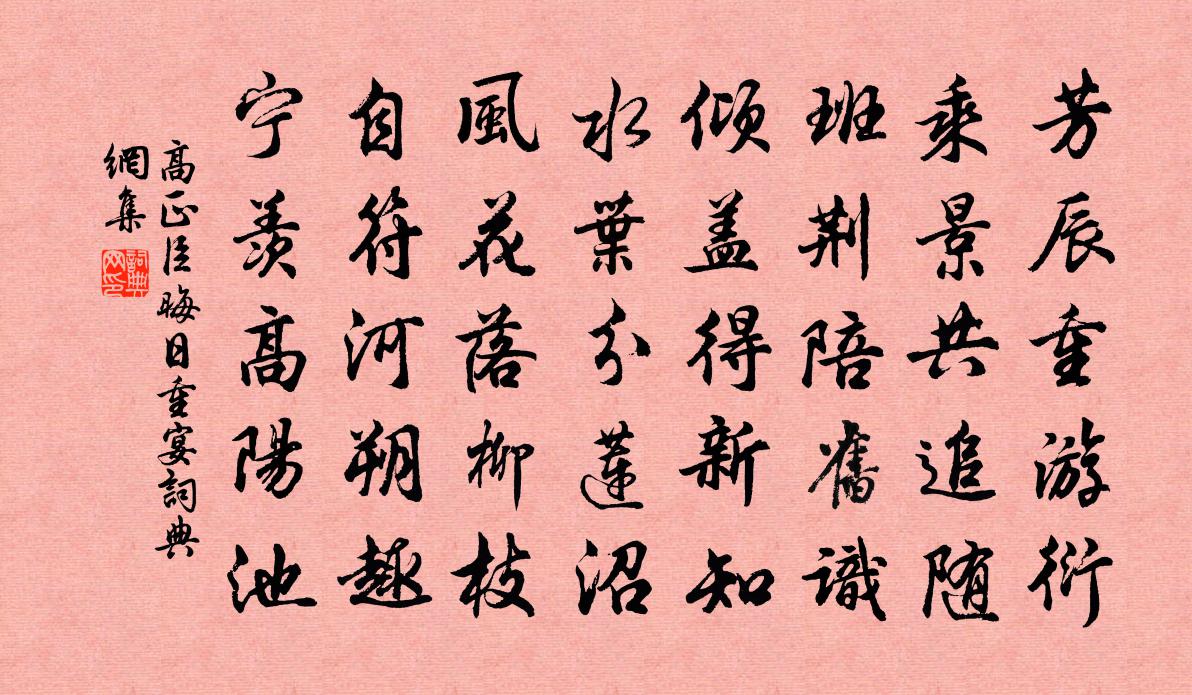 芳辰重游衍
乘景共追随
班荆陪舊識
倾盖得新知
水葉分蓮沼
風花落柳枝
自符河朔趣
宁羡高陽池
高正臣晦日重宴詞典
網集
詞典網印